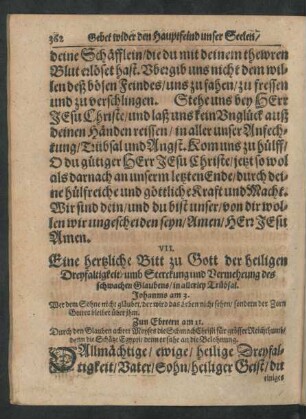 362 Gebet wider den Hauptfeind unser Seelen/
deine Schäfflein/die du mit deinem thewren
Blut erlöset hast. Vbergib uns nicht dem wil-
len deß bösen Feindes/ uns zu fahen/ zu fressen
und zu verschlingen. Stehe uns bey HErr
JEsu Christe/ und laß uns kein Vnglück auß
deinen Händen reissen/ in aller unser Anfech-
tung/ Trübsal und Angst. Kom uns zu hülff/
O du gütiger HErr JEsu Christe/ jetzt so wol
als darnach an unserm letzten Ende/ durch dei-
ne hülfreiche und göttliche Kraft und Macht.
Wir sind dein/ und du bist unser/ von dir wol-
len wir ungescheiden seyn/ Amen/ HErr JEsu
Amen.
VII.
Eine hertzliche Bitt zu Gott der heiligen
Dreyfaltigkeit/ umb Sterckung und Vermehrung des
schwachen Glaubens/ in allerley Trübsal.
Johannis am 3.
Wer dem Sohne nicht gläubet/ der wird das Leben nicht sehen/ sondern der Zorn
Gottes bleibet über ihm.
Zun Ebreern am 11.
Durch den Glauben achtet Moyses die Schmach Christi für grösser Reichthumb/
denn die Schätze Egypti/ denn er sahe an die Belohnung.
Allmächtige/ ewige/ heilige Dreyfal-
tigkeit/ Vater/ Sohn/ heiliger Geist/ dit
einiges